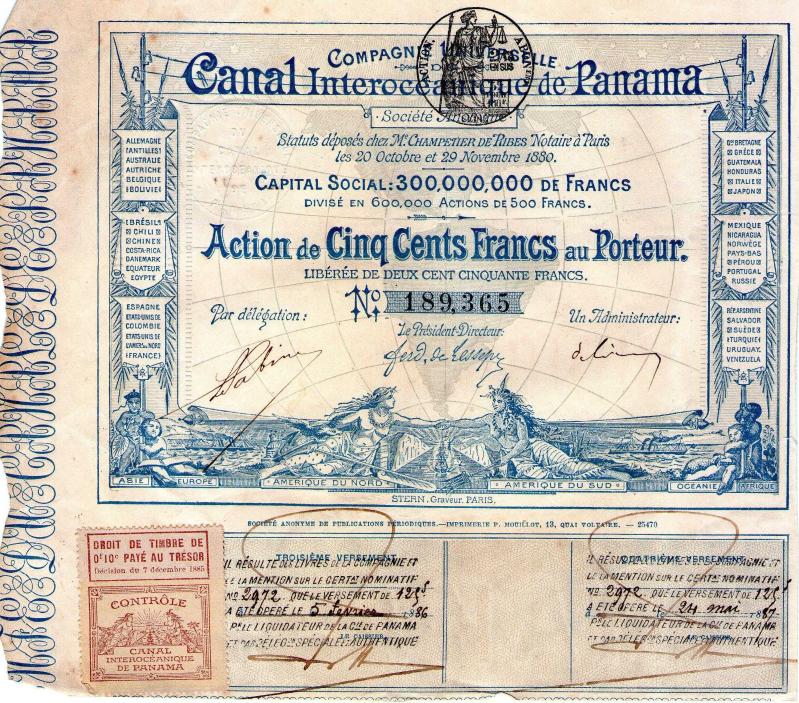 COMPAGNIE UNIVERSELLE
DU
Canal Interocéanique de Panama
ACTION. ABONNEMENT
Société Anonyme.
Statuts déposés chez Mᵉ CHAMPETIER DE RIBES Notaire à Paris
les 20 Octobre et 29 Novembre 1880.
CAPITAL SOCIAL: 300,000,000 DE FRANCS
DIVISÉ EN 600,000 ACTIONS DE 500 FRANCS.
Action de Cinq Cents Francs au Porteur.
LIBÉRÉE DE DEUX CENT CINQUANTE FRANCS.
Nº 189,365
Par délégation:
Le Président-Directeur:
Un Administrateur:
Ferd. de Lesseps
ALLEMAGNE
(ANTILLES)
AUSTRALIE
AUTRICHE
BELGIQUE
BOLIVIE
(BRÉSIL)
CHILI
CHINE
COSTA-RICA
DANEMARK
EQUATEUR
EGYPTE
ESPAGNE
ETATS-UNIS DE
COLOMBIE
ETATS-UNIS DE
L'AMÉR. DU NORD
(FRANCE)
Gᴰᴱ BRETAGNE
GRÈCE
GUATEMALA
HONDURAS
ITALIE
JAPON
MEXIQUE
NICARAGUA
NORWÈGE
PAYS-BAS
PÉROU
PORTUGAL
RUSSIE
RÉP. ARGENTINE
SALVADOR
SUÈDE
TURQUIE
URUGUAY.
VENEZUELA
ASIE
EUROPE
AMERIQUE DU NORD
AMERIQUE DU SUD
OCÉANIE
AFRIQUE
STERN, Graveur, PARIS.
SOCIÉTÉ ANONYME DE PUBLICATIONS PÉRIODIQUES.—IMPRIMERIE P. MOUILLOT, 13, QUAI VOLTAIRE. — 25470
DROIT DE TIMBRE DE
0f10c PAYÉ AU TRÉSOR
Décision du 7 décembre 1885
CONTRÔLE
CANAL
INTEROCÉANIQUE
DE PANAMA
TROISIÈME VERSEMENT
IL RÉSULTE DES LIVRES DE LA COMPAGNIE ET
DE LA MENTION SUR LE CERTᵗ NOMINATIF
Nº 2972 QUE LE VERSEMENT DE 125f
A ÉTÉ OPÉRÉ LE 5 fevrier 1886
Pʳ LE LIQUIDATEUR DE LA Cⁱᵉ DE PANAMA
LE CAISSIER
ET PAR DÉLEGᵒⁿ SPÉCIALE AUTHENTIQUE
QUATRIÈME VERSEMENT
IL RÉSULTE DES LIVRES DE LA COMPAGNIE ET
DE LA MENTION SUR LE CERTᵗ NOMINATIF
Nº 2972 QUE LE VERSEMENT DE 125f
A ÉTÉ OPÉRÉ LE 24 mai 1887
Pʳ LE LIQUIDATEUR DE LA Cⁱᵉ DE PANAMA
LE CAISSIER
ET PAR DÉLEGᵒⁿ SPÉCIALE AUTHENTIQUE